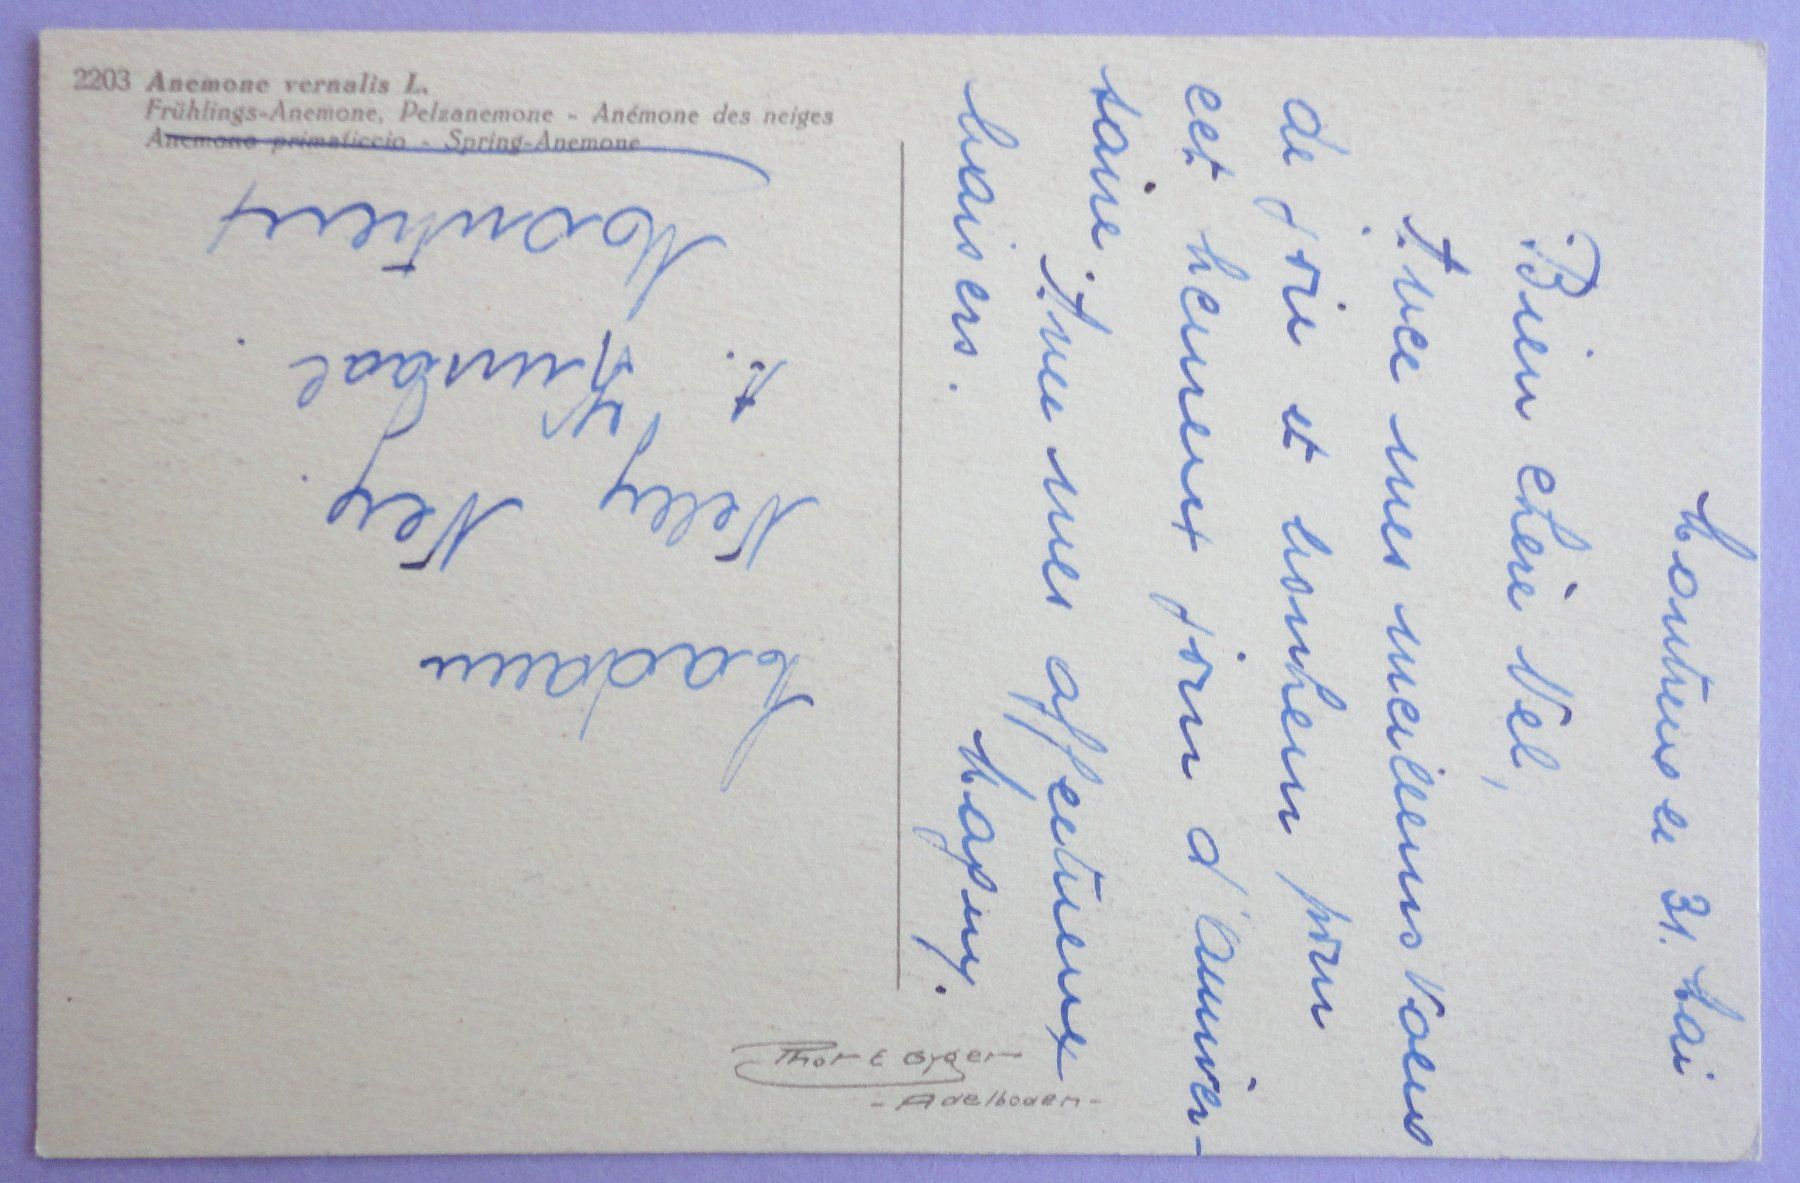 2203 Anemone vernalis L.
Frühlings-Anemone, Pelzanemone - Anémone des neiges
Anemono primaticcio - Spring-Anemone
Montreux 31. Mai
Bien chère Nel,
Avec mes meilleurs voeux
de joie et bonheur pour
cet heureux jour d'anniver-
saire. Avec mes affectueux
baisers.
Madame
Nelly Ney
Kursaal
Montreux
Thor E Gyger
- Adelboden -